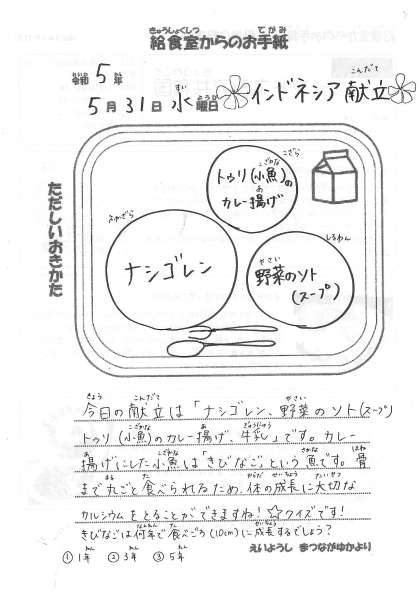 給食室からのお手紙
令和5年
5月31日水曜日 インドネシア献立
ただしいおきかた
トゥリ(小魚)の
カレー揚げ
ナシゴレン
野菜のソト
(スープ)
今日の献立は「ナシゴレン、野菜のソト(スープ)
トゥリ(小魚)のカレー揚げ、牛乳」です。カレー
揚げにした小魚は「きびなご」という魚です。骨
まで丸ごと食べられるため、体の成長に大切な
カルシウムをとることができますね!☆クイズです!
きびなごは何年で食べごろ(10cm)に成長するでしょう?
①1年 ②3年 ③5年 えいようし まつながゆかより